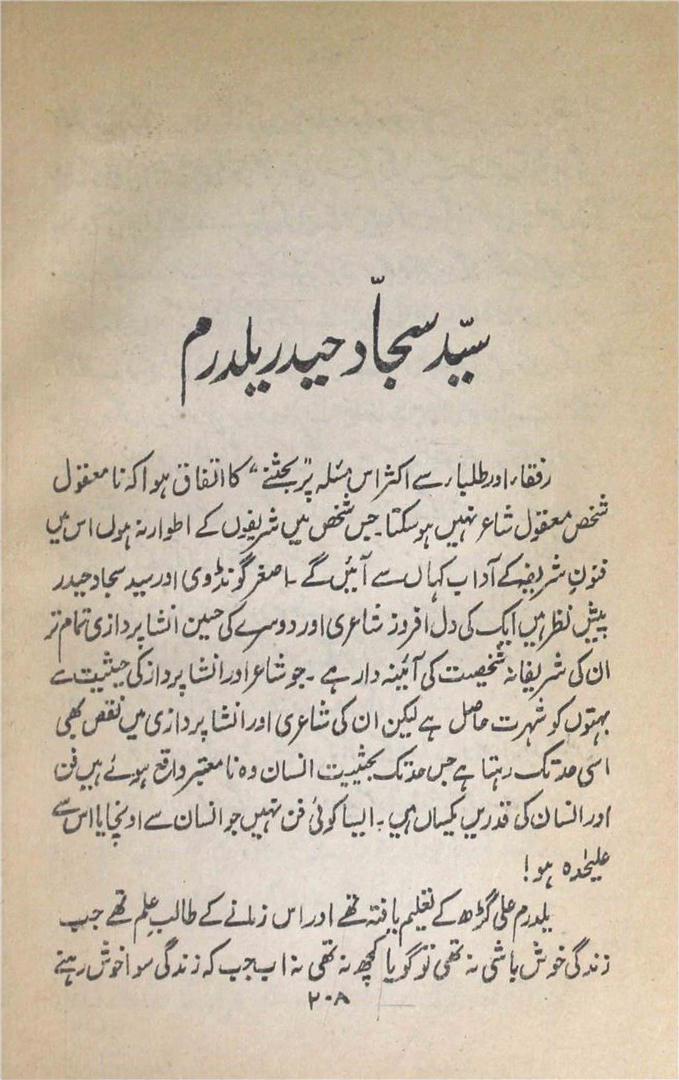 سیّد سجّاد حیدر یلدرم
رفقاء اور طلباء سے اکثر اس مسئلہ پر "بحثنے" کا اتفاق ہوا کہ نامعقول
شخص معقول شاعر نہیں ہو سکتا۔ جس شخص میں شریفوں کے اطوار نہ ہوں اس میں
فنونِ شریفہ کے آداب کہاں سے آئیں گے۔ اصغر گونڈوی اور سید سجاد حیدر
پیشِ نظر ہیں ایک کی دل افروز شاعری اور دوسرے کی حسین انشا پردازی تمام تر
ان کی شریفانہ شخصیت کی آئینہ دار ہے۔ جو شاعر اور انشا پرداز کی حیثیت سے
بہتوں کو شہرت حاصل ہے لیکن ان کی شاعری اور انشا پردازی میں نقص بھی
اسی حد تک رہتا ہے جس حد تک بحیثیت انسان وہ نا معتبر واقع ہوئے ہیں فن
اور انسان کی قدریں یکساں ہیں۔ ایسا کوئی فن نہیں جو انسان سے اونچا یا اس سے
علیٰحدہ ہو!
یلدرم علی گڑھ کے تعلیم یافتہ تھے اور اس زمانے کے طالب علم تھے جب
زندگی خوش باشی نہ تھی تو گویا کچھ نہ تھی نہ اب جب کہ زندگی سوا خوش رہنے
۲۰۸